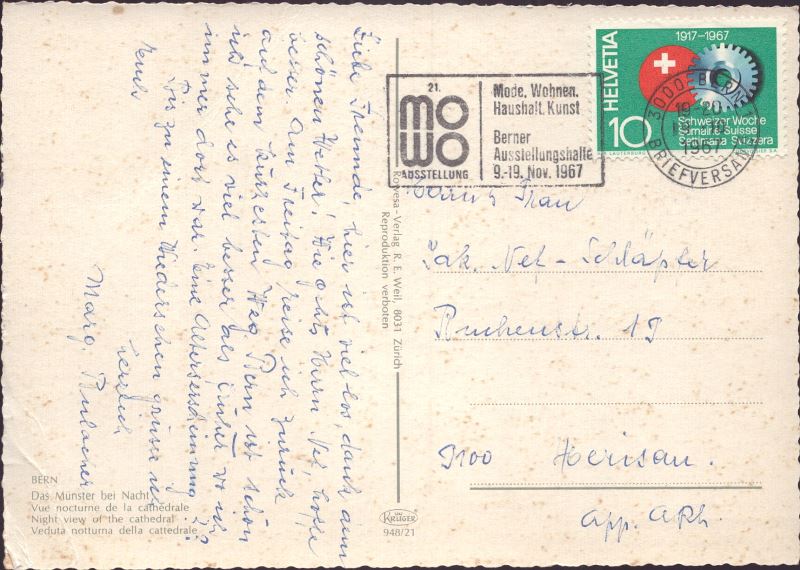 Liebe Freunde, hier ist viel los, dank dem
schönen Wetter! Wie geht Herrn Nef, hoffe
besser. Am Freitag reise ich zurück
auf dem kürzesten Weg. Bern ist schön
und sehe es viel besser als früher wo ich
immer dort war. Eine Alterserscheinung??
Bis zu einem Wiedersehen grüsse
herzlich
Marg.
BERN
Das Münster bei Nacht
Vue nocturne de la cathédrale
Night view of the cathedral
Veduta notturna della cattedrale
Rowesa-Verlag R. E. Weil, 8031 Zürich
Reproduktion verboten
KRÜGER
948/21
21.
MOWO
AUSSTELLUNG
Mode. Wohnen.
Haushalt. Kunst
Berner
Ausstellungshalle
9.-19. Nov. 1967
HELVETIA
1917-1967
10
Schweizer Woche
Semaine Suisse
Settimana Svizzera
3000 BERN
1967
BRIEFVERSAND
Frau
Jak. Nef-Schläpfer
Buchenstr. 19
9100 Herisau.
App. ARh.